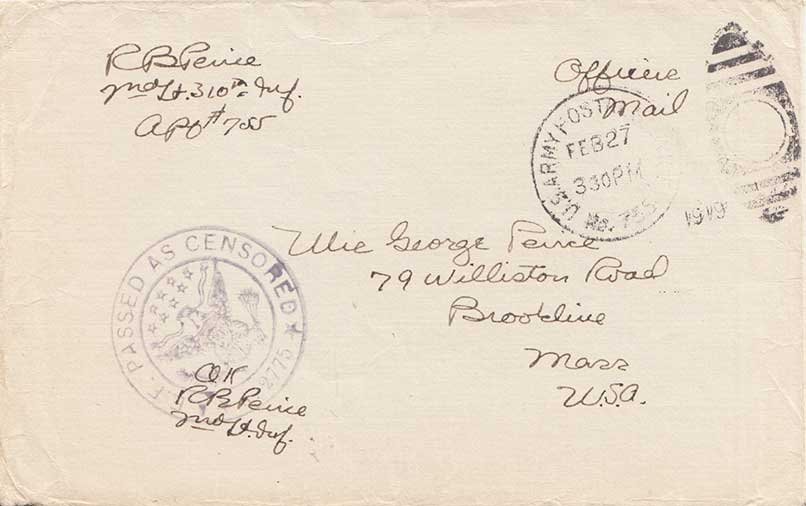 R B Peirce
2nd Lt. 310th Inf.
A.P.O. #755
Officers
Mail
U.S. ARMY POST
FEB 27
330 PM
No. 755
1919
George Peirce
79 Williston Road
Brookline
Mass
U.S.A.
PASSED AS CENSORED
2775
OK
R B Peirce
2nd Lt. Inf.